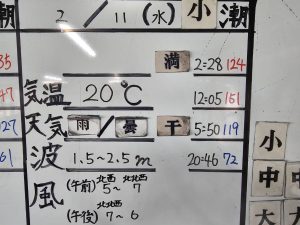 2/11(水)小潮
満 2:28 124
35
気温 20℃ 12:05 161
47
天気 雨/曇 干 5:50 119
27
波 1.5~2.5m 20:46 72
61
風 (午前) 北西 5~ 北北西 7
(午後) 北北西 7~6
小
中
大